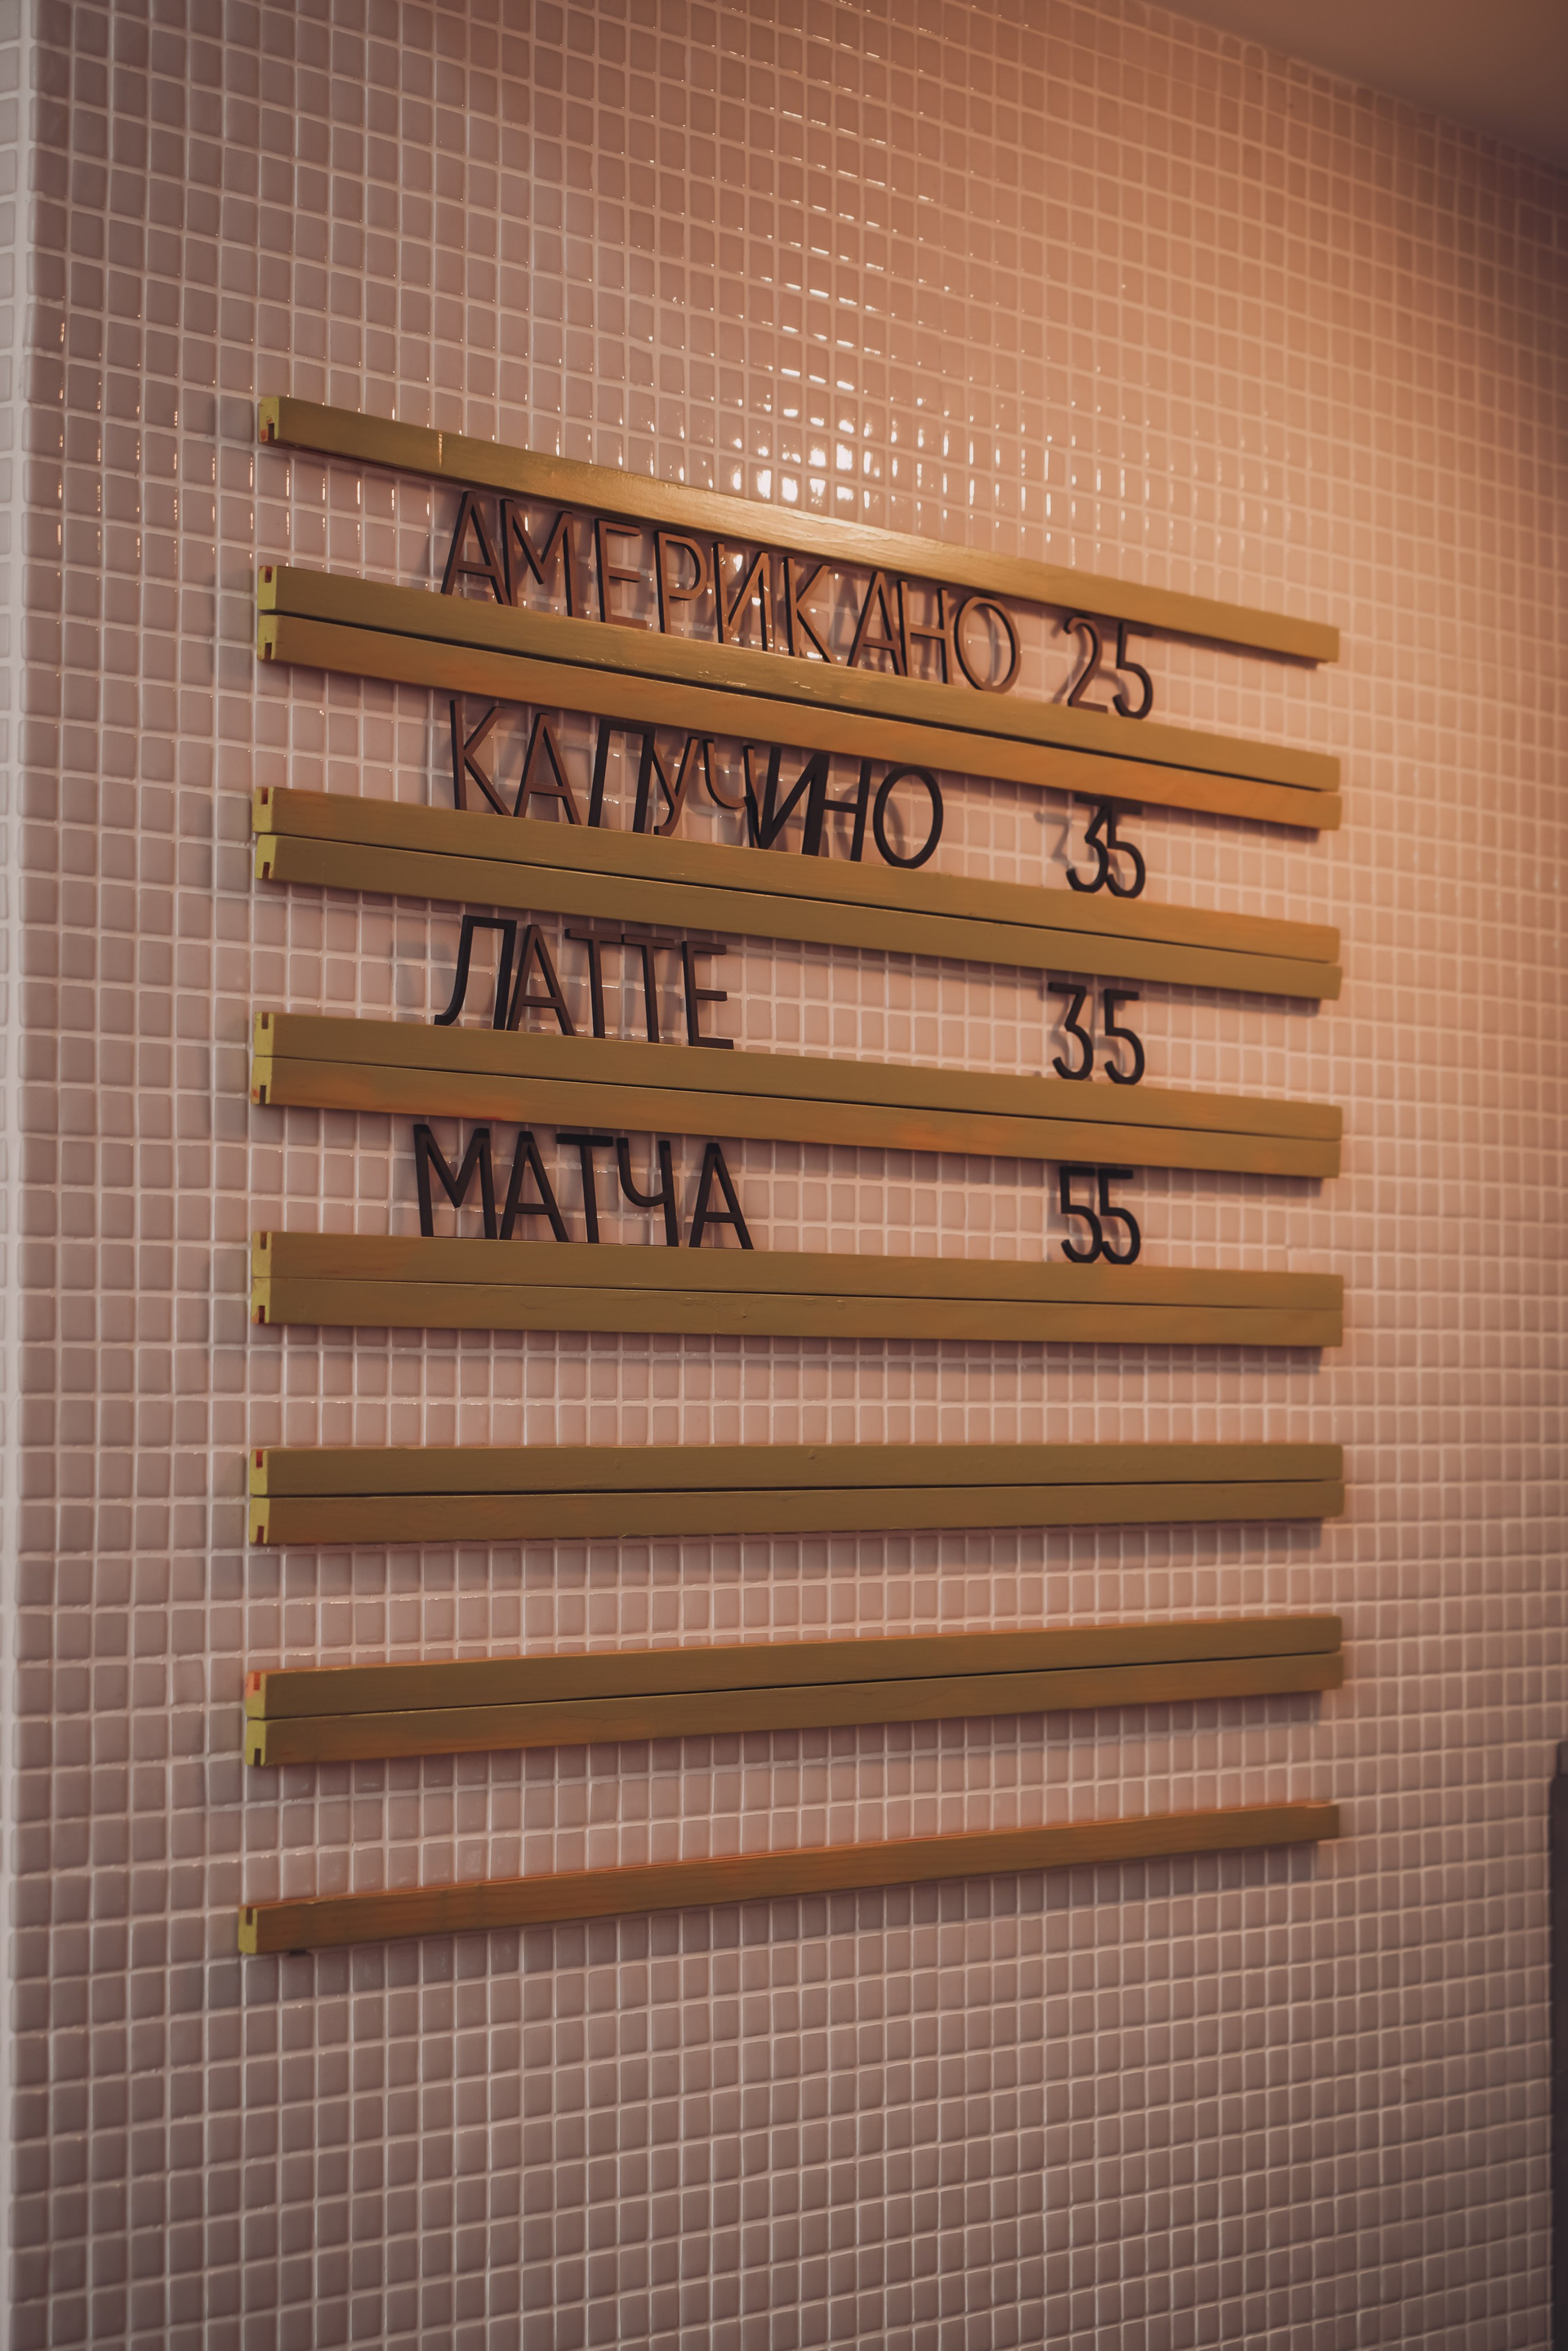 АМЕРИКАНО 25
КАПУЧИНО 35
ЛАТТЕ 35
МАТЧА 55